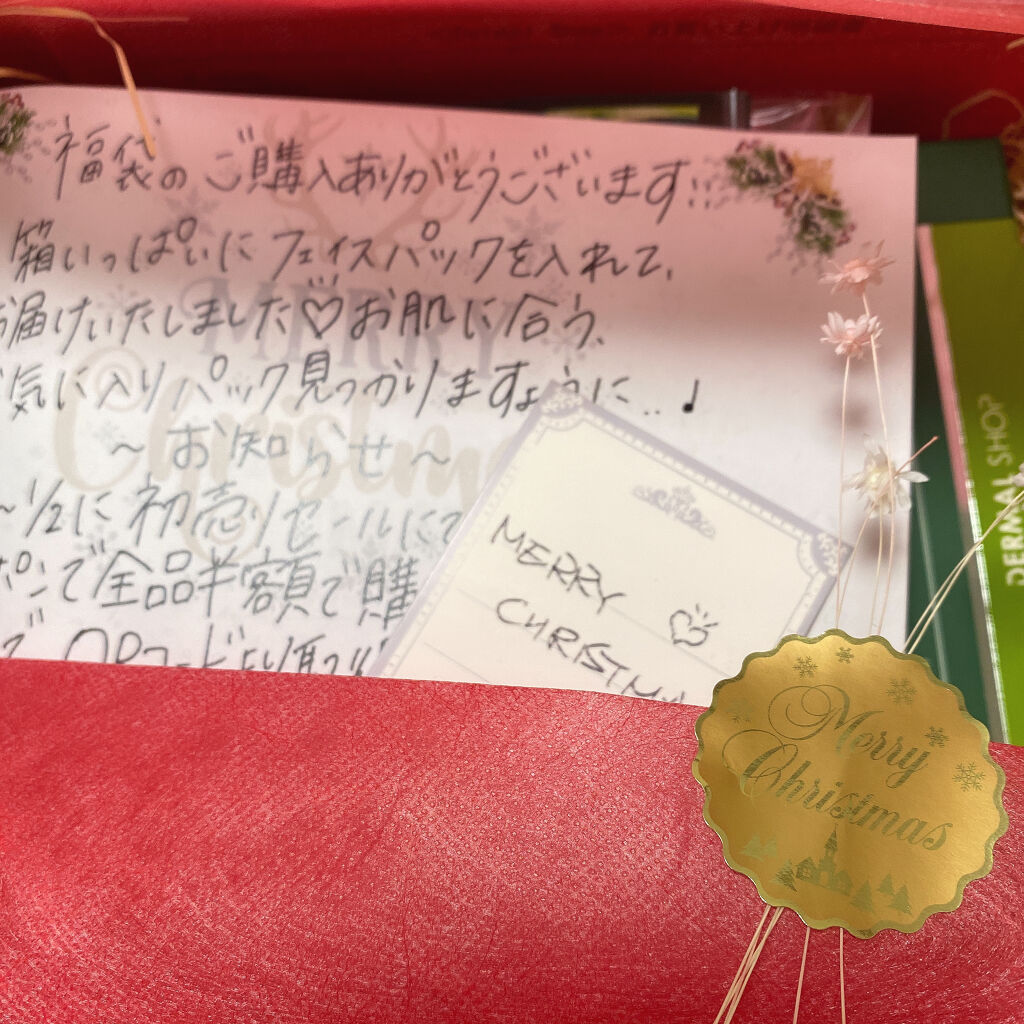 福袋のご購入ありがとうございます!!
箱いっぱいにフェイスパックを入れて、
お届けいたしました♡お肌に合う、
気に入りパック見つかりますように..♩
～お知らせ～
～1/2に初売りセールにて
ポンで全品半額で購
QRコード
MERRY
CHRISTM
MERRY
Christm
Merry
Christmas
DERMAL SHOP